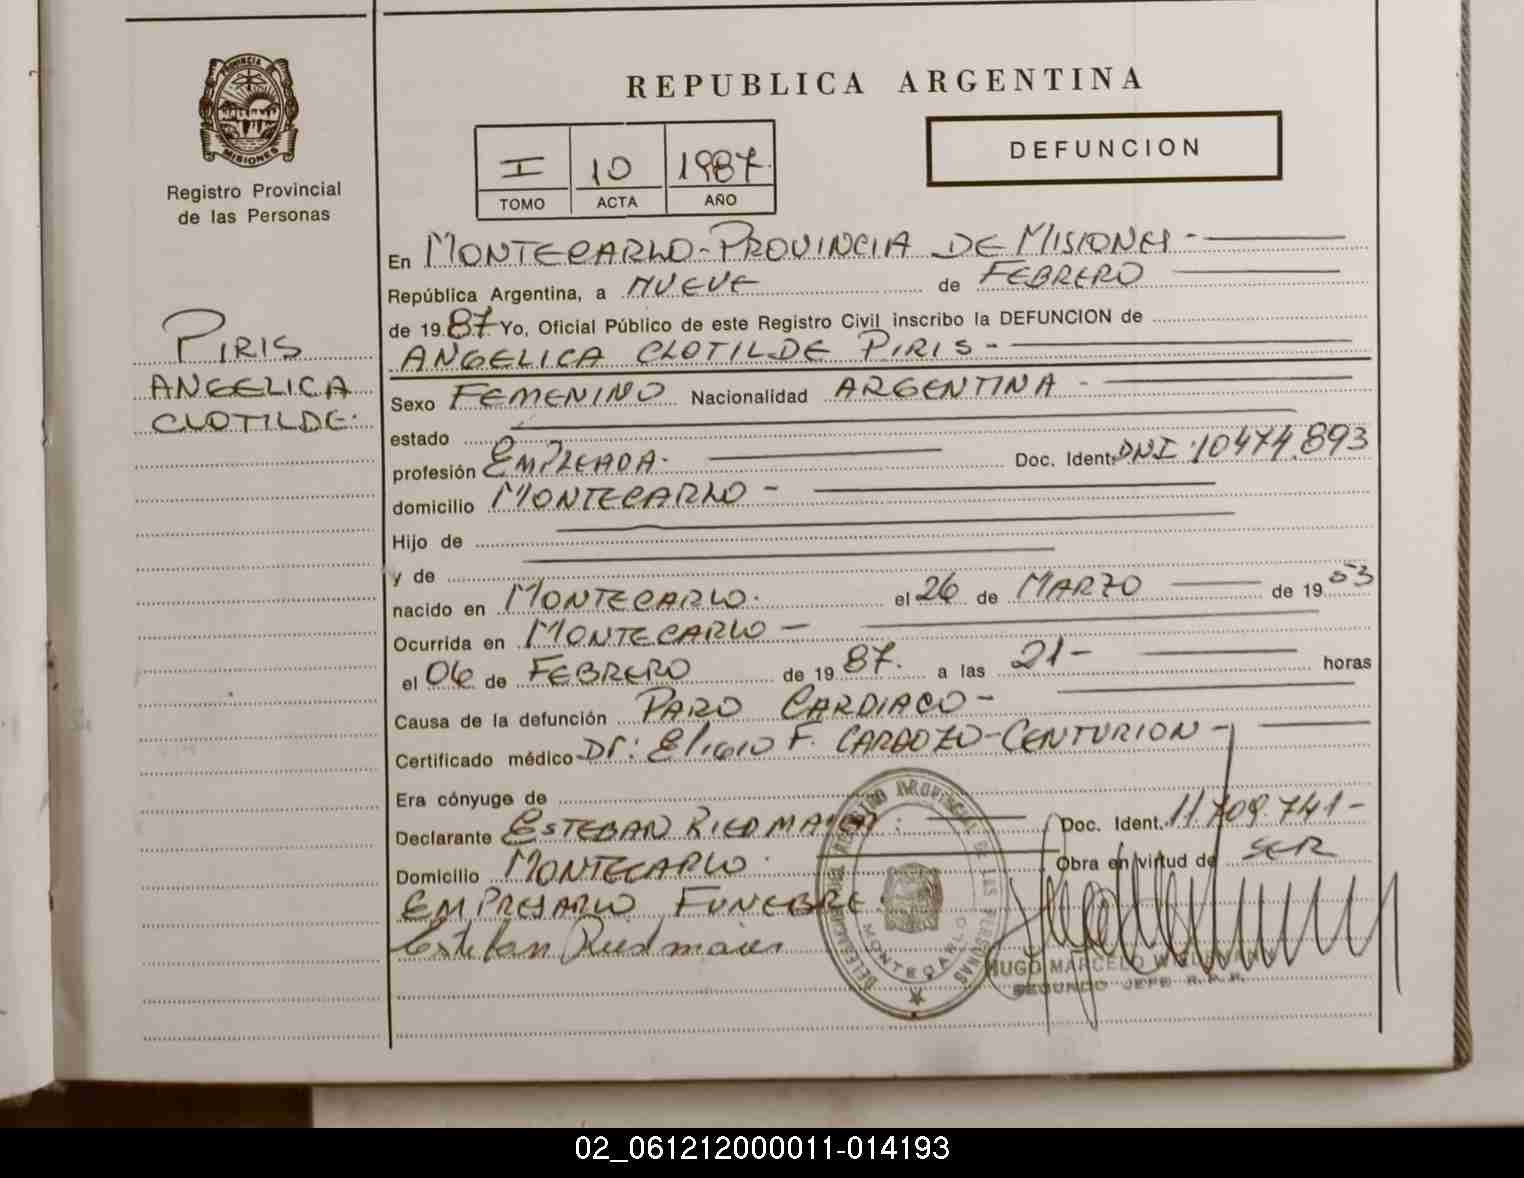 PROVINCIA DE
MISIONES
Registro Provincial
de las Personas
PIRIS
ANGELICA
CLOTILDE.
REPUBLICA ARGENTINA
I 10 1987
TOMO ACTA AÑO
DEFUNCION
En MONTECARLO-PROVINCIA DE MISIONES-
República Argentina, a NUEVE de FEBRERO
de 19 87 Yo, Oficial Público de este Registro Civil inscribo la DEFUNCION de
ANGELICA CLOTILDE PIRIS-
Sexo FEMENINO Nacionalidad ARGENTINA -
estado
profesión EMPLEADA. Doc. Ident. DNI 10474.893
domicilio MONTECARLO -
Hijo de
y de
nacido en MONTECARLO. el 26 de MARZO de 19 53
Ocurrida en MONTECARLO -
el 06 de FEBRERO de 19 87. a las 21- horas
Causa de la defunción PARO CARDIACO -
Certificado médico Dr: Eligio F. CARDOZO-CENTURION -
Era cónyuge de
Declarante ESTEBAN RIEDMAIER. Doc. Ident. 11.709.741-
Domicilio MONTECARLO. Obra en virtud de SER
EMPRESARIO FUNEBRE
Esteban Riedmaier
DELEGACION DEL REGISTRO PROVINCIAL DE LAS PERSONAS
MONTECARLO
HUGO MARCELO
SEGUNDO JEFE R.P.P.
02_061212000011-014193